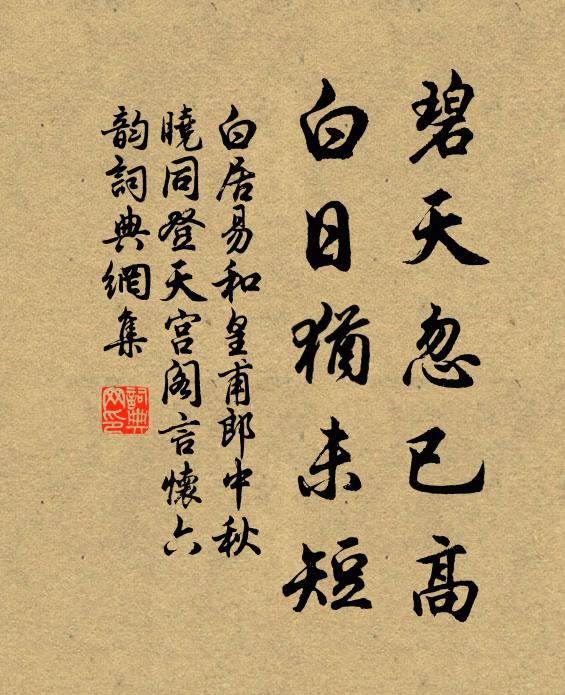 碧天忽已高
白日猶未短
白居易和皇甫郎中秋
曉同登天宮閣言懷六
韵詞典網集
詞典
网印